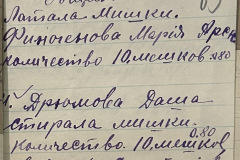 Латала мишки.
Финогенова Марія Арсе
количество 10 мешков 0.80
4. Дрюмова Даша
стирала мишки.
0.80
количество. 10 мешков